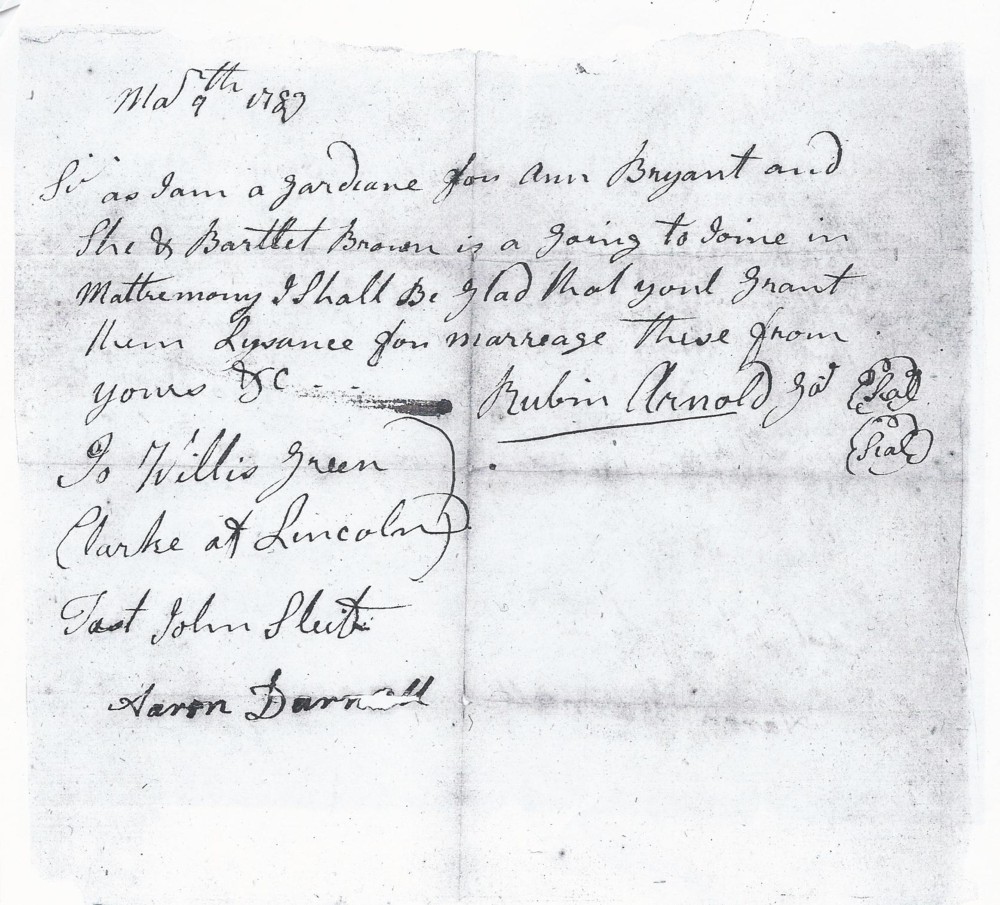 Mar 9th 1789
Sir as I am a gardiane for Ann Bryant and
She & Bartlet Brown is a going to Joine in
Mattremony I Shall Be glad that youl grant
them Lysance for marreage these from
yours &c Rubin Arnold Gd Seal
Seal
To Willis Green
Clarke at Lincoln
Tast John Sleit
Aaron Darnell